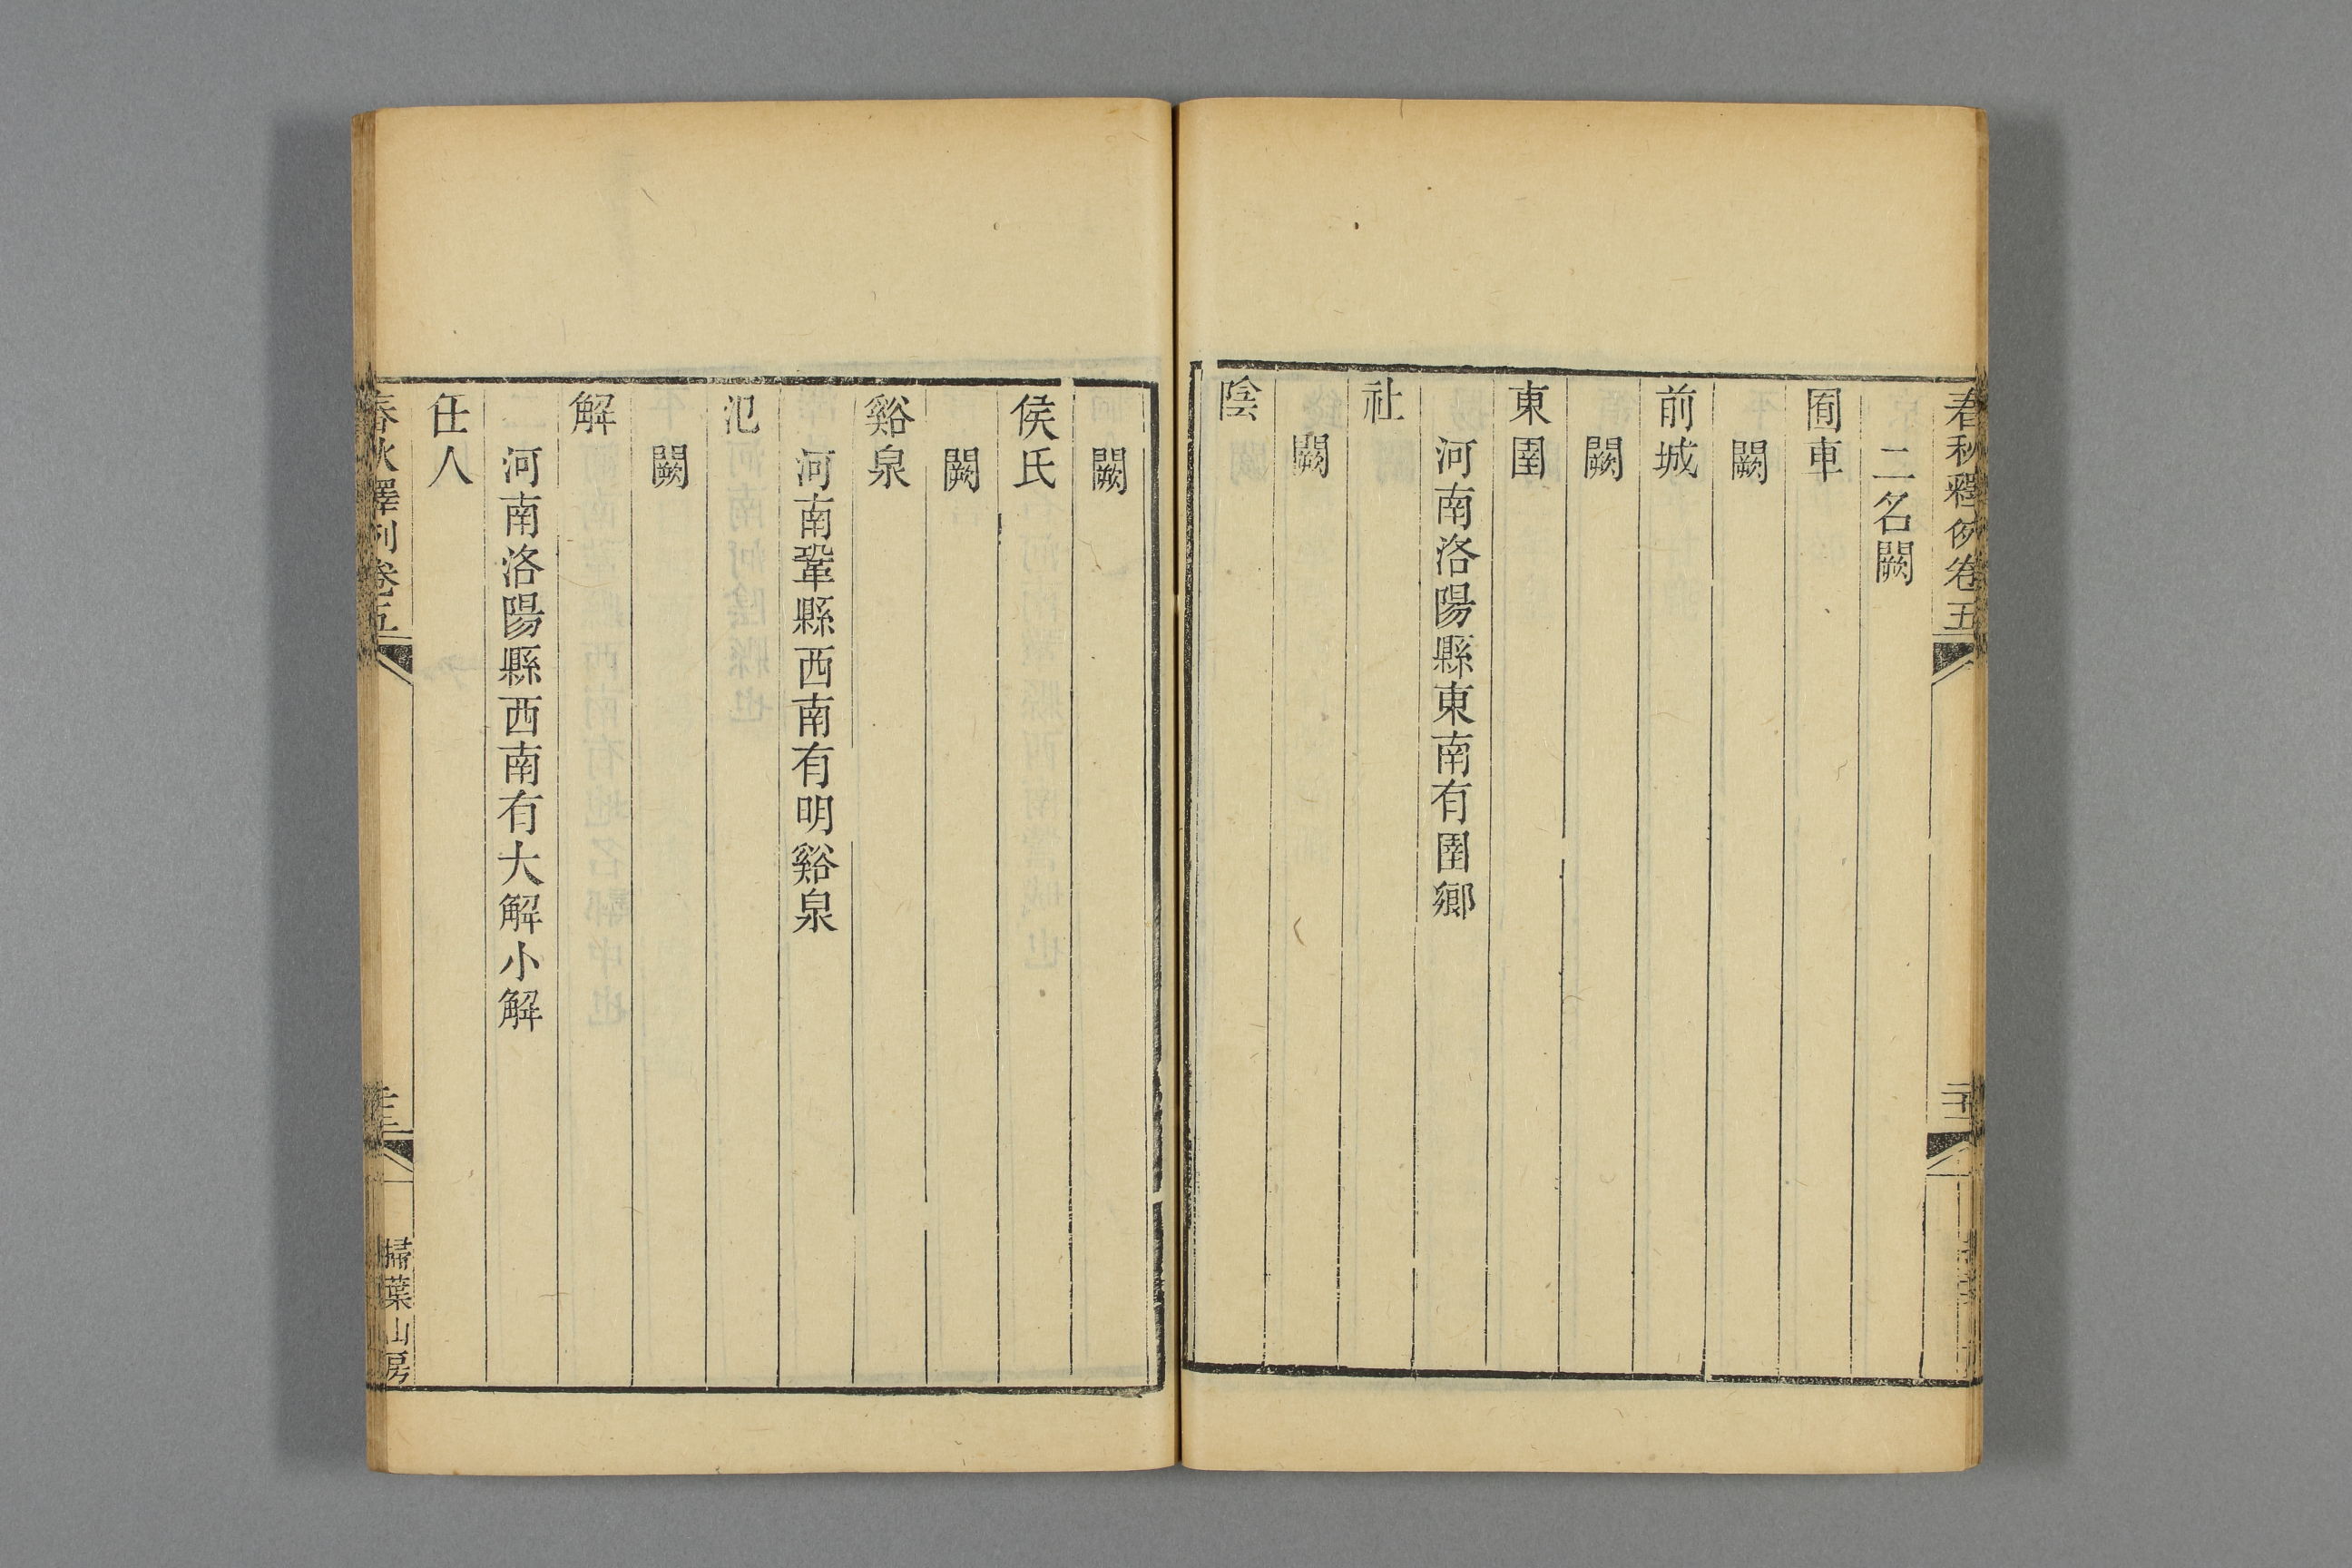 春秋釋例卷五
二名闕
圉車
闕
前城
闕
東圉
河南洛陽縣東南有圉鄉
社
闕
陰
闕
侯氏
闕
谿泉
河南鞏縣西南有明谿泉
氾
闕
解
河南洛陽縣西南有大解小解
任人
春秋釋例卷五
掃葉山房